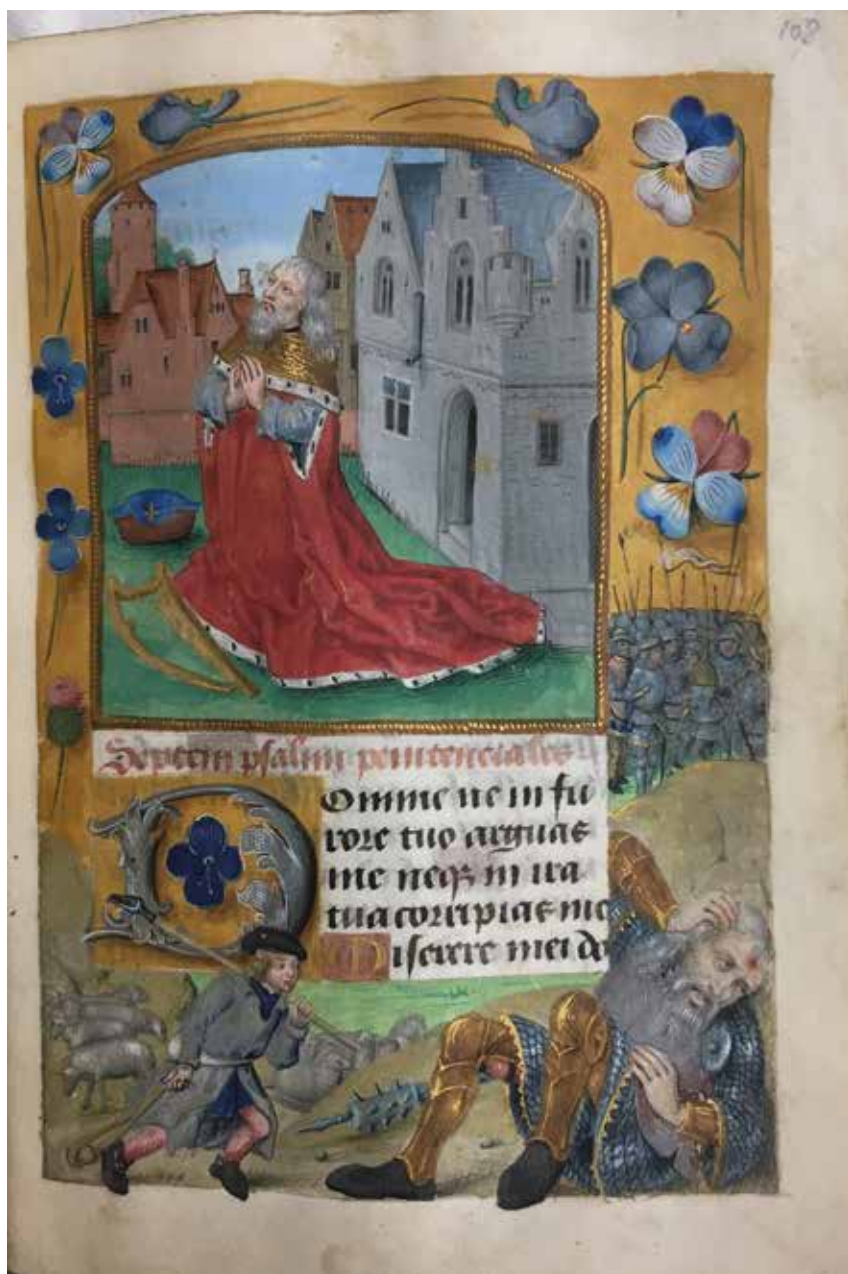 108
Septem psalmi penitenciales
Domine ne in fu
rore tuo arguas
me neqȝ in ira
tua corripias me
Miserere mei do